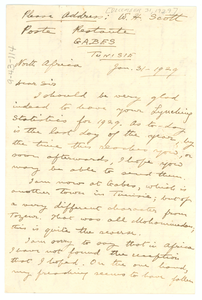 Please Address: W. H. Scott
Poste Restante
GABES
TUNISIE
North Africa
Jan. 31 - 1929
Dear Sir
I should be very glad
indeed to have your Lynching
Statistics for 1929. As to-day
is the last day of the year, by
the time this reaches you, or
soon afterwards, I hope you
may be able to send them.
I am now at Gabes, which is
another town in Tunisia, but of
a very different character from
Tozeur. That was all Mohammedan,
this is quite the reverse.
I am sorry to say that in Africa
I have not found the reception
that I hoped. On the one hand,
my preaching seems to have fallen